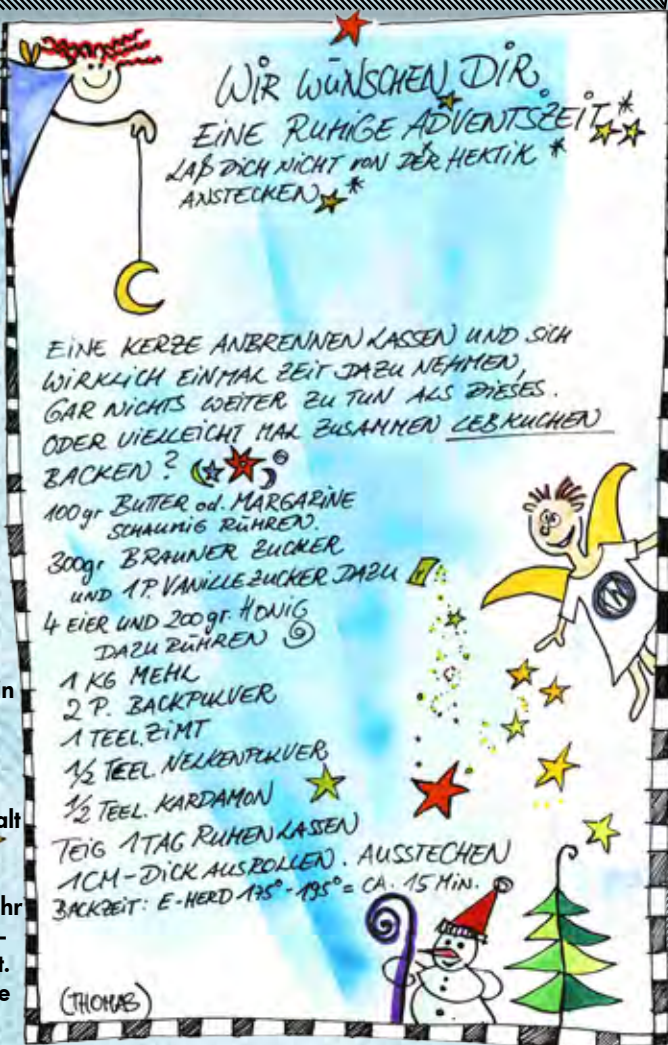 WIR WÜNSCHEN DIR
EINE RUHIGE ADVENTSZEIT *
LAß DICH NICHT VON DER HEKTIK *
ANSTECKEN *
EINE KERZE ANBRENNEN LASSEN UND SICH
WIRKLICH EINMAL ZEIT DAZU NEHMEN,
GAR NICHTS WEITER ZU TUN ALS DIESES.
ODER VIELLEICHT MAL ZUSAMMEN LEBKUCHEN
BACKEN?
100gr BUTTER od. MARGARINE
SCHAUMIG RÜHREN.
300gr. BRAUNER ZUCKER
UND 1 P. VANILLEZUCKER DAZU
4 EIER UND 200 gr. HONIG
DAZU RÜHREN
1 KG MEHL
2 P. BACKPULVER
1 TEEL. ZIMT
1/2 TEEL. NELKENPULVER
1/2 TEEL. KARDAMON
TEIG 1 TAG RUHEN LASSEN
1CM-DICK AUSROLLEN. AUSSTECHEN
BACKZEIT: E-HERD 175°-195° = CA. 15 MIN.
(THOMAS)
n
alt
hr
-
t.
e